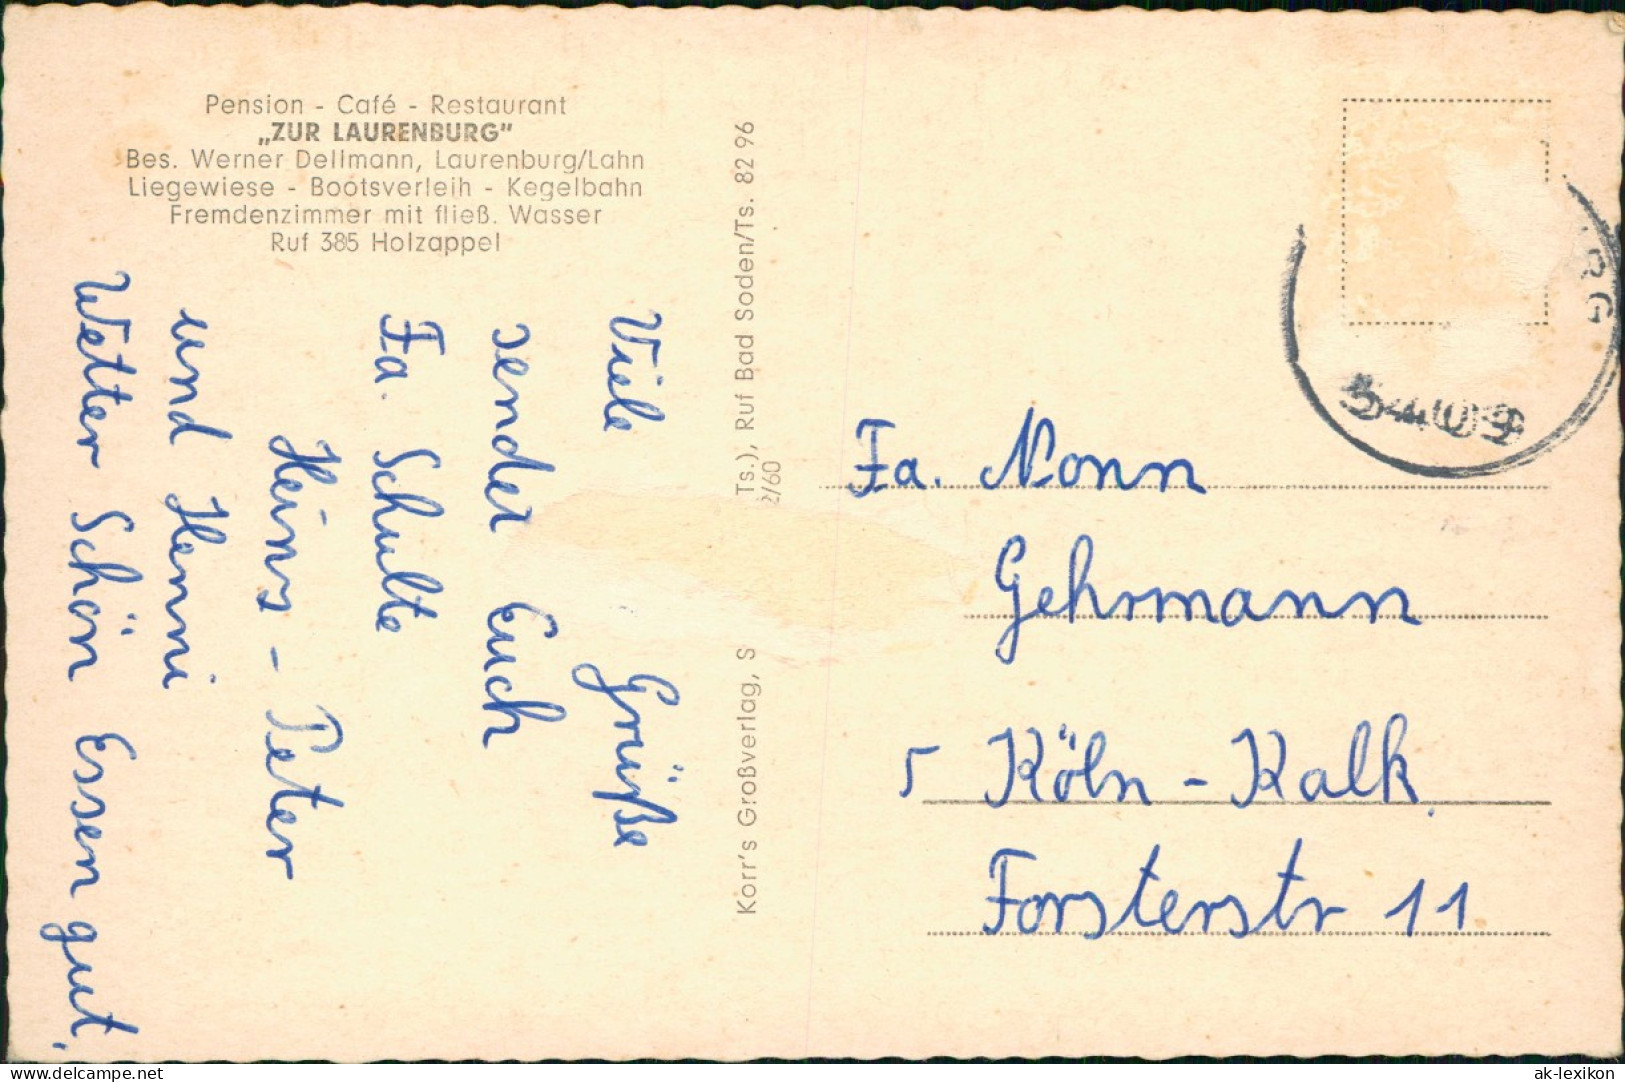 Pension - Café - Restaurant
„ZUR LAURENBURG"
Bes. Werner Dellmann, Laurenburg/Lahn
Liegewiese - Bootsverleih - Kegelbahn
Fremdenzimmer mit fließ. Wasser
Ruf 385 Holzappel
Viele Grüße
sendet Euch
Fa. Schulte
Heins - Peter
und Henni
Wetter Schön Essen gut,
Korr's Großverlag, S
Ts.), Ruf Bad Soden/Ts. 82 96
2/60
RG
5409
Fa. Nonn
Gehrmann
5 Köln - Kalk
Forsterstr 11
www.delcampe.net
ak-lexikon